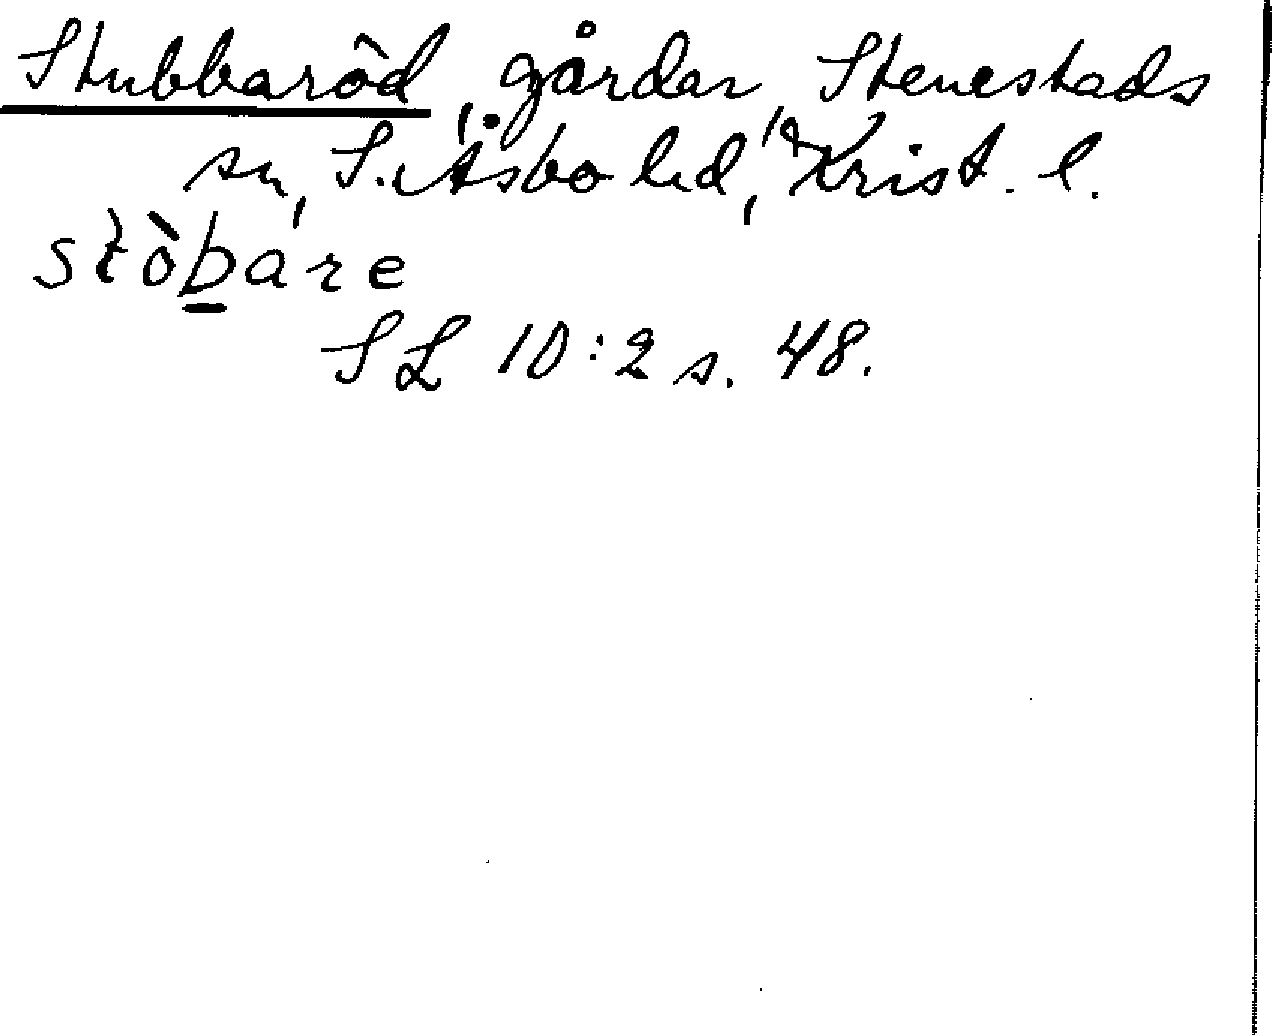 Stubbaröd, gårdar, Stenestads
sn, S. Åsbo hd, Krist. l.
stòbare
SL 10:2 s. 48.